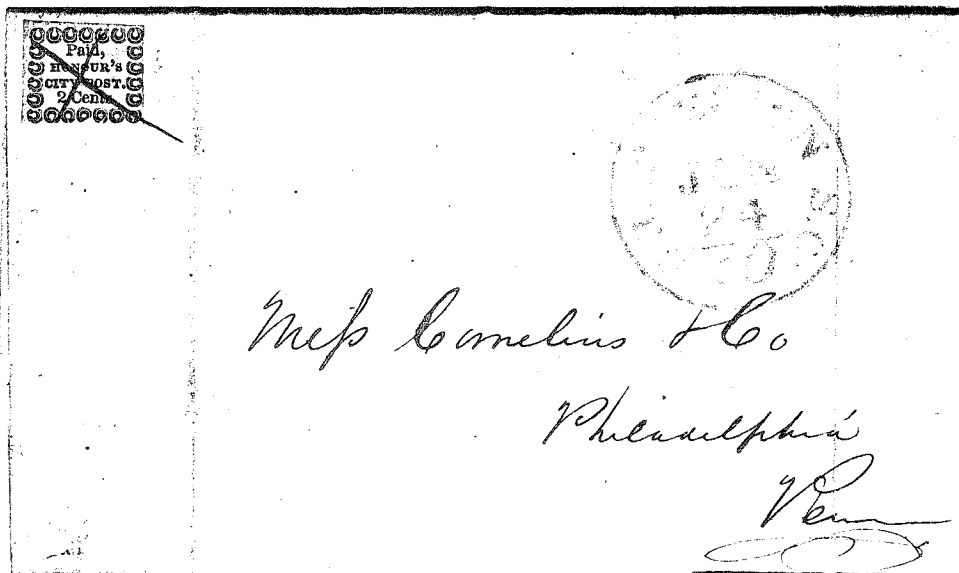 Paid,
HONOUR'S
CITY POST.
2 Cents.
24
Mess Cornelius & Co
Philadelphia
Penn